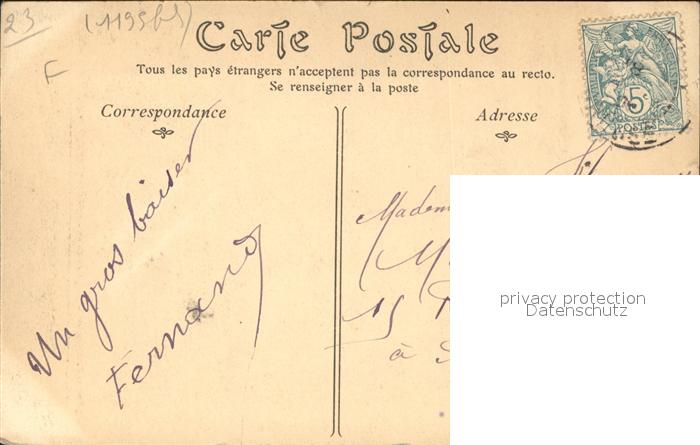 23
(1195bis)
F
Carte Postale
Tous les pays étrangers n'acceptent pas la correspondance au recto.
Se renseigner à la poste
Correspondance
Adresse
5c
POSTES
Un gros baiser
Fernand
Madem
M
15
à
privacy protection
Datenschutz